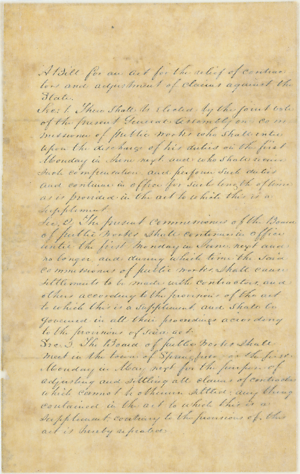 A Bill for an act for the relief of contrac
tors and adjustment of claims against the
State.
Sec 1 There shall be elected by the joint vote
of the present General Assembly one com
missioner of public works who shall enter
upon the discharge of his duties on the first
Monday in June next and who shall receive
such compensation and perform such duties
and continue in office for such length of time
as is provided in the act to which this is a
supplement.
Sec 2 The present Commissioners of the Board
of public works shall continue in office
until the first Monday in June next and
no longer and during which time the said
commissioners of public works shall cause
settlements to be made with contractors and
others according to the provisions of the act
to which this is a supplement and shall be
governed in all their proceedings according
to the provisions of said act.
Sec 3 The Board of public works shall
meet in the town of on the first
Monday in May next for the purpose of
adjusting and settling all claims of contractors
which cannot be otherwise settled any thing
contained in the act to which this is a
supplement contrary to the provisions of this
act is hereby repealed.